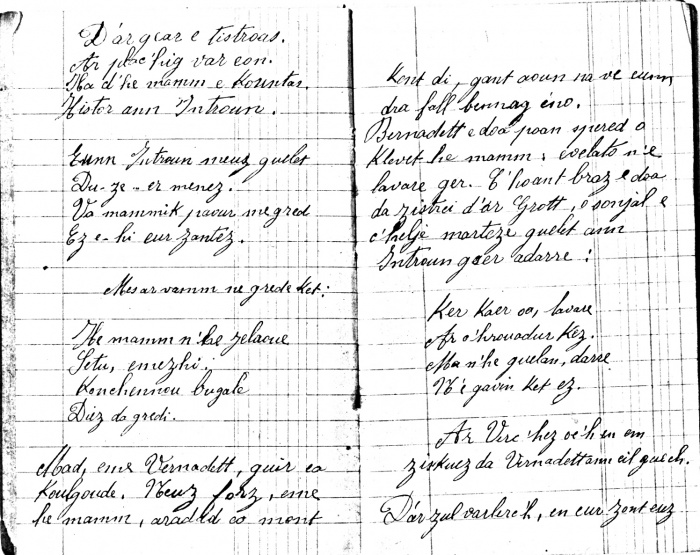 D'ar gear e tistroas.
Ar plac'hig var eon.
Ha d'he mamm e kountas.
Histor ann Introun.
Eunn Introun meuz guelet
Du-ze-er menez.
Va mammik paour me gred
Ez e-hi eur zantez.
Mes ar vamm ne grede ket:
He mamm n'he zelaoue
Setu, emezhi.
Konchennou bugale
Diez da gredi.
Mad, eme Vernadett, guir eo
koulgoude. Neuz forz, eme
he mamm, arabad eo mont
kont di, gant aoun na ve eunn
dra fall bennag eno.
Bernadett e doa poan spered o
klevet he mamm; evelato n'e
lavare ger. C'hoant braz e doa
da zistrei d'ar Grott, o sonjal e
c'hellje marteze guelet ann
Introun gaer adarre!
Ker kaer oa, lavare
Ar c'hrouadur kez.
Ma n'he guelan, darre
N'e gavin ket ez.
Ar Verc'hez oc'h en em
ziskuez da Vernadett ann eil guech.
D'ar zul varlerc'h, en eur zont euz